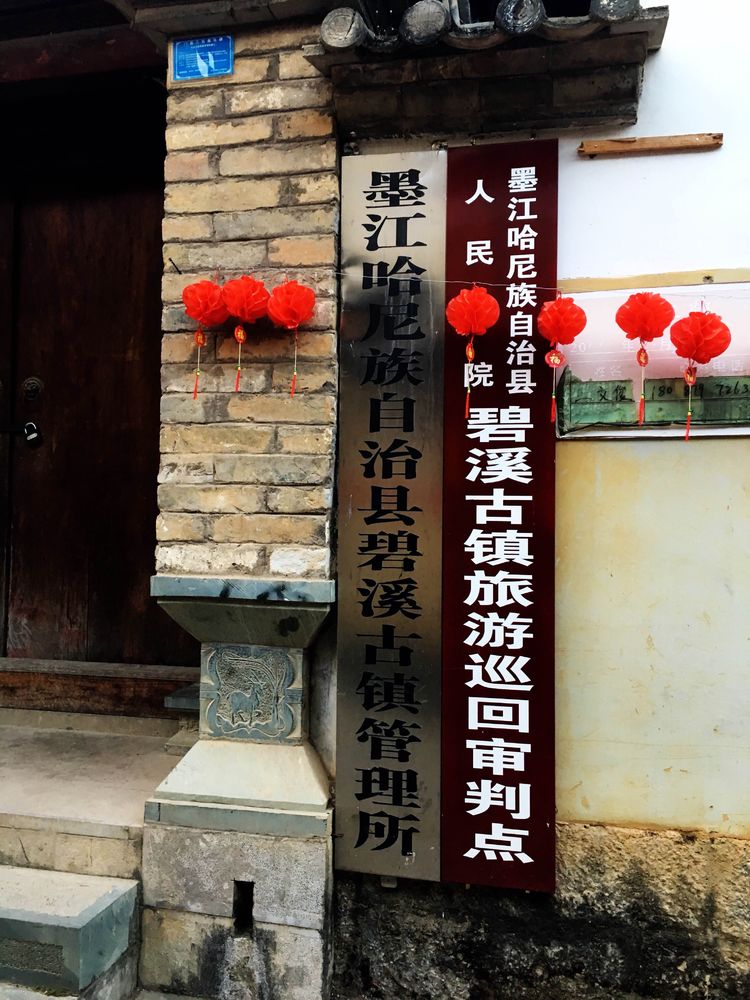 墨江哈尼族自治县碧溪古镇管理所
墨江哈尼族自治县
人民院
碧溪古镇旅游巡回审判点